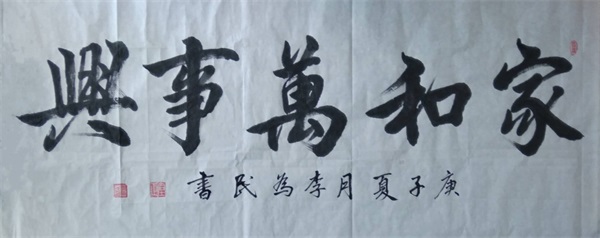 家和萬事興
庚子夏月李為民書